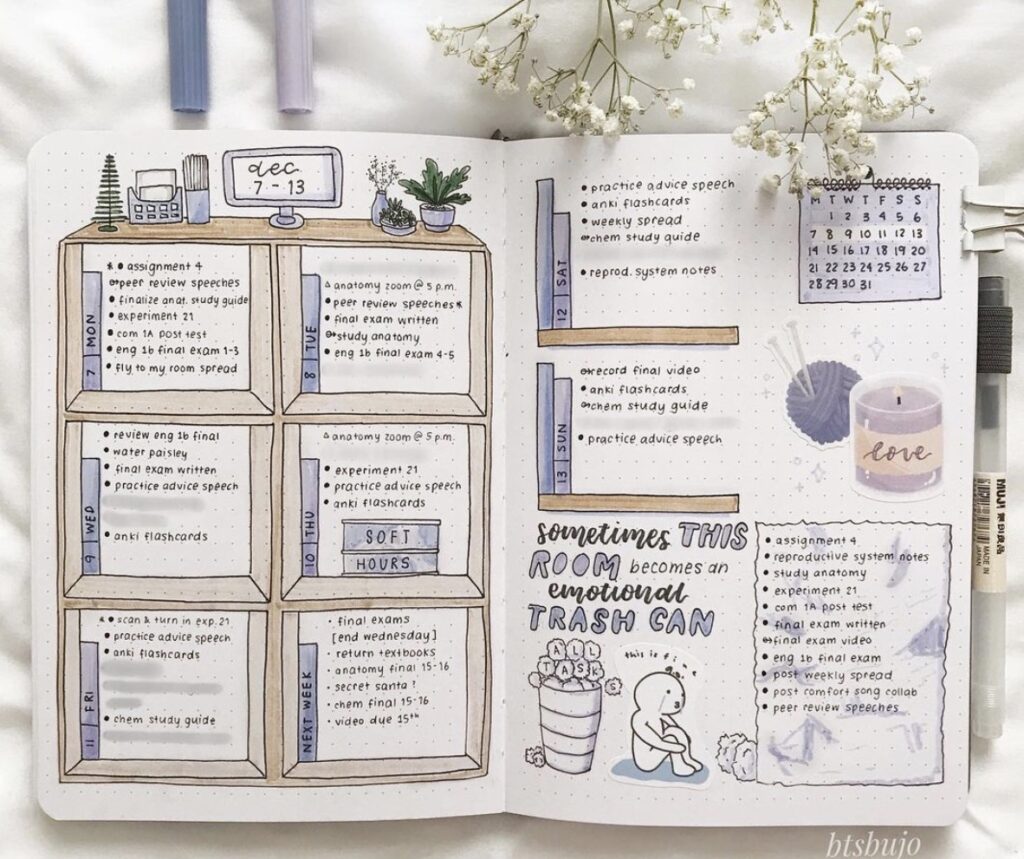 dec.
7 - 13
7 | MON
* • assignment 4
peer review speeches
• finalize anat. study guide
• experiment 21
• com 1A post test
• eng 1b final exam 1-3
• fly to my room spread
8 | TUE
△ anatomy zoom @ 5 p.m.
• peer review speeches *
• final exam written
study anatomy
• eng 1b final exam 4-5
9 | WED
• review eng 1b final
• water paisley
• final exam written
• practice advice speech
• anki flashcards
10 | THU
△ anatomy zoom @ 5 p.m.
• experiment 21
• practice advice speech
• anki flashcards
SOFT
HOURS
11 | FRI
* • scan & turn in exp. 21
• practice advice speech
• anki flashcards
• chem study guide
NEXT WEEK
· final exams
[end wednesday]
· return textbooks
· anatomy final 15-16
· secret santa!
· chem final 15-16
· video due 15th
12 | SAT
• practice advice speech
• anki flashcards
• weekly spread
chem study guide
• reprod. system notes
M T W T F S S
1 2 3 4 5 6
7 8 9 10 11 12 13
14 15 16 17 18 19 20
21 22 23 24 25 26 27
28 29 30 31
13 | SUN
record final video
• anki flashcards
chem study guide
• practice advice speech
love
MUJI 無印良品
MADE IN
JAPAN
sometimes THIS
ROOM becomes an
emotional
TRASH CAN
ALL
TASKS
this is fine
• assignment 4
• reproductive system notes
• study anatomy
• experiment 21
• com 1A post test
• final exam written
final exam video
• eng 1b final exam
• post weekly spread
• post comfort song collab
• peer review speeches
btsbujo